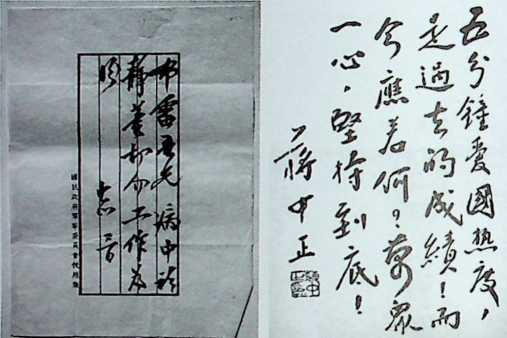 布雷吾兄 病中
靜養切勿工作為
盼
國民政府軍事委員會
五分鐘愛國熱度，
是過去的成績！而
今應若何？萬眾
一心，堅持到底！
蔣中正